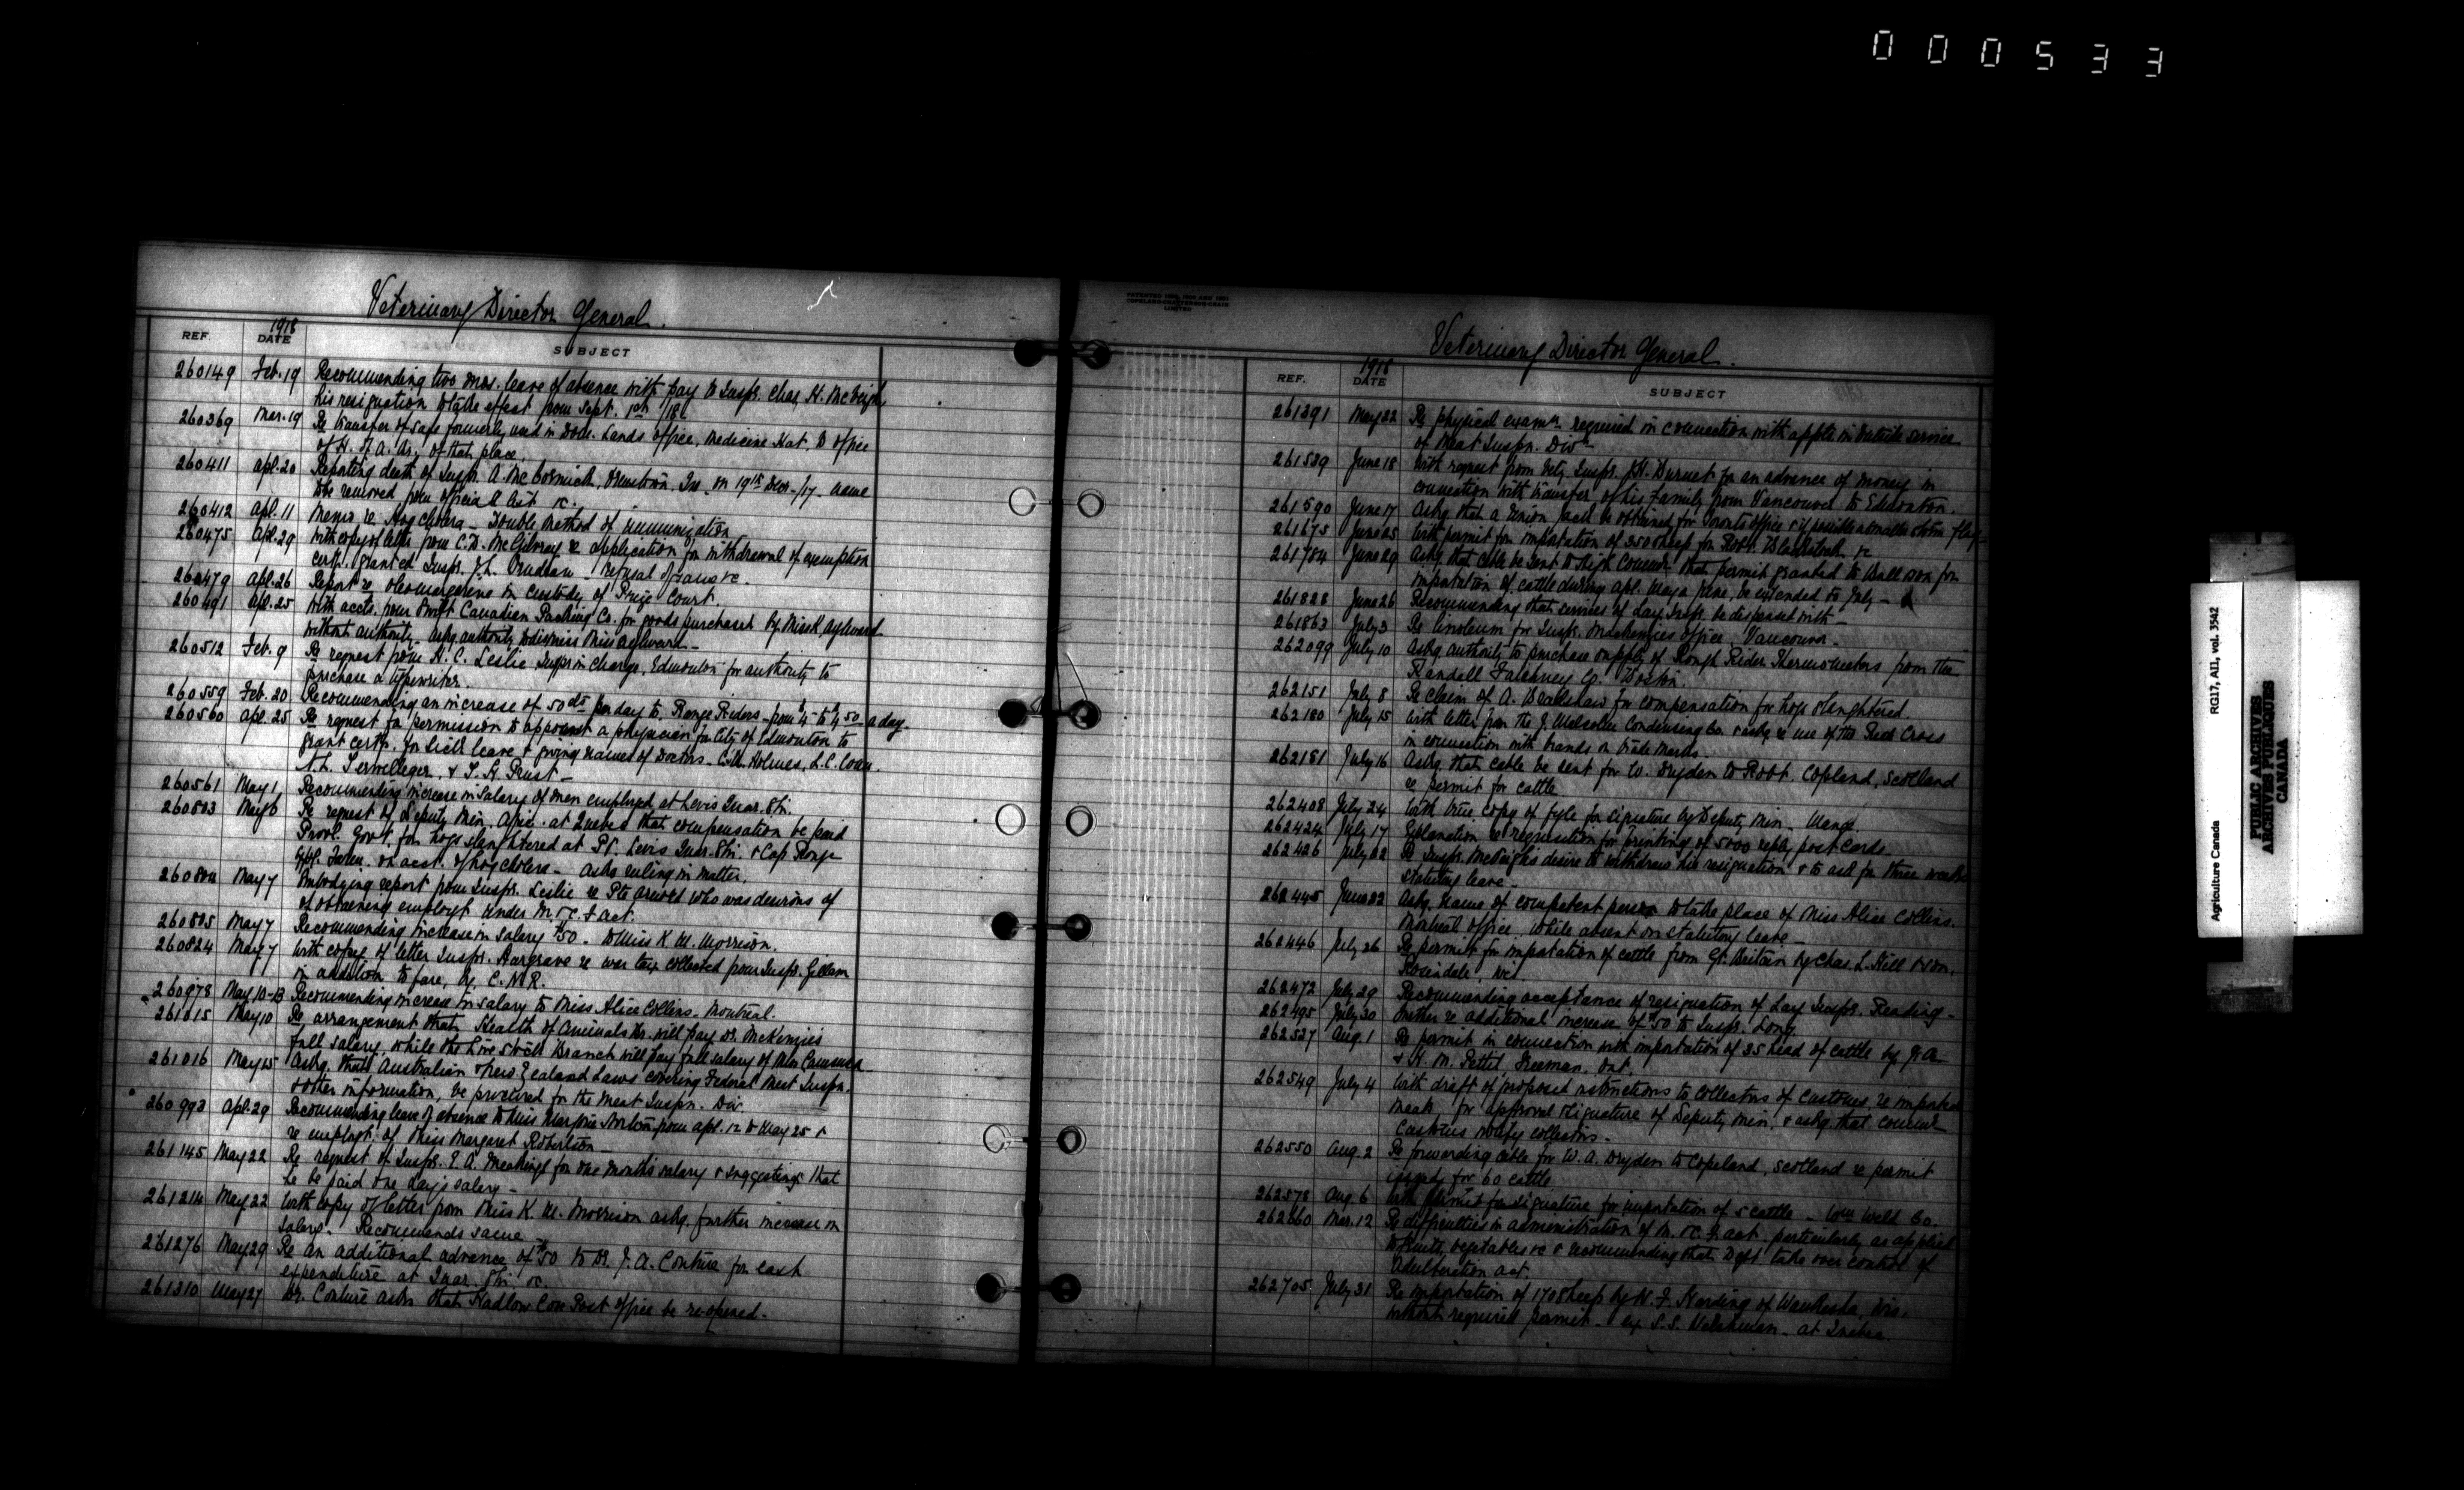 000533
Veterinary Director General.
REF. 1918 DATE SUBJECT
260149 Feb. 19 Recommending two mos. leave of absence with pay to Inspr. Chas. H. McVeigh,
his resignation to take effect from Sept. 1st /18.
260369 Mar. 19 Re transfer of safe formerly used in Dom. Lands office, Medicine Hat, to office
of H. of A. Br. of that place.
260411 Apl. 20 Reporting death of Inspr. A. McCormick, Ormstown, Que. on 19th Decr./17. name
to be removed from official list &c.
260412 Apl. 11 Memo re Hog Cholera - Double method of immunization
260475 Apl. 29 With copy of letter from C.D. McGilvray re application for withdrawal of exemption
certf. granted Inspr. J.L. - Refusal of same &c.
260479 Apl. 26 Report re oleomargerine in custody of Prize Court
260491 Apl. 25 With accts. from Swift Canadian Packing Co. for goods purchased by Miss K. Aylward
without authority. Askg. authority to dismiss Miss Aylward -
260512 Feb. 9 Re request from H. C. Leslie, Inspr in charge, Edmonton for authority to
purchase a typewriter.
260559 Feb. 20 Recommending an increase of 50 cts per day to Range Riders - from $4 - to $4.50 a day -
260560 Apl. 25 Re request for permission to appoint a physician for City of Edmonton to
grant certfs. for sick leave & giving names of Doctors - C.M. Holmes, L.C.
N.L. Terwilleger, & T. H.
260561 May 1 Recommending increase in salary of men employed at Levis Quar. Stn.
260803 May 6 Re request of Deputy Min. Agric. at Quebec that compensation be paid
Provl. Govt. for hogs slaughtered at Pt. Levis Quar. Stn. & Cap Rouge
Exptl. Farm on acct. of hog cholera - asks ruling in matter.
260804 May 7 Embodying report from Inspr. Leslie re Pte who was desirous of
of obtaining employt under M. & C. F. Act.
260805 May 7 Recommending increase in salary $50 - to Miss K. M. Morrison.
260824 May 7 With copy of letter Inspr. Hargrave re war tax collected from Inspr. Gillam
in addition to fare, by C.N.R.
260978 May 10-13 Recommending increase in salary to Miss Alice Collins - Montreal.
261015 May 10 Re arrangement that Health of Animals Br. will pay Dr. McKenzie's
full salary while the Live Stock Branch will pay full salary of Miss
261016 May 15 Askg. that Australian & New Zealand Laws covering Federal Meat Inspn.
& other information, be procured for the Meat Inspn. Div.
260993 Apl. 29 Recommending leave of absence to Miss Marjorie Norton from Apl. 12 to May 25 &
re employt. of Miss Margaret Robertson
261145 May 22 Re request of Inspr. E. A. Meakings for one month's salary & suggesting that
he be paid one day's salary -
261214 May 22 With copy of letter from Miss K. M. Morrison askg. further increase in
salary. Recommends same
261276 May 29 Re an additional advance of $50 to Dr. J. A. Couture for cash
expenditure at Quar. Stn. &c.
261310 May 27 Dr. Couture asks that Hadlow Cove Post office be re-opened.
PATENTED
COPELAND-CHATTERSON-CRAIN
LIMITED
Veterinary Director General.
REF. 1918 DATE SUBJECT
261391 May 22 Re physical examn. required in connection with appts. in outside service
of Meat Inspn. Divn.
261539 June 18 With request from Vety. Inspr. J.H. Burnet for an advance of money in
connection with transfer of his family from Vancouver to Edmonton.
261590 June 17 Askg. that a Union Jack be obtained for Toronto office & if possible a smaller storm flag
261675 June 25 With permit for importation of 350 sheep for Robt. &c
261704 June 29 Askg. that cable be sent to High Commr. that permit granted to Ball & Son for
importation of cattle during Apl. May & June, be extended to July -
261828 June 26 Recommending that services of Lay Inspr. be dispensed with -
261863 July 3 Re linoleum for Inspr. Mackenzies office, Vancouver -
262099 July 10 Askg. authority to purchase supply of Rough Rider Thermometers from the
Randall Faichney Co. Boston.
262151 July 8 Re claim of A. for compensation for hogs slaughtered.
262180 July 15 With letter from the J. Malcolm Condensing Co. & askg. re use of the Red Cross
in connection with brands or trade marks
262181 July 16 Askg. that cable be sent for W. Dryden to Robt. Copeland, Scotland
re permit for cattle
262408 July 24 With true copy of for signature by Deputy Min. - Mange.
262424 July 17 Explanation re requisition for printing of 5000 reply post cards -
262426 July 22 Re Inspr. McVeigh's desire to withdraw his resignation & to ask for three weeks
statutory leave -
262445 June 22 Askg. name of competent person to take place of Miss Alice Collins.
Montreal office, while absent on statutory leave -
262446 July 26 Re permit for importation of cattle from Gt. Britain by Chas. L. Hill & Son,
Rosendale, Wis.
262472 July 29 Recommending acceptance of resignation of Lay Inspr. Reading -
262495 July 30 Further re additional increase of $50 to Inspr. Long.
262527 Aug. 1 Re permit in connection with importation of 35 head of cattle by J. A.
& H. M. Pettit, Freeman, Ont.
262549 July 4 With draft of proposed instructions to Collectors of Customs re imported
meats, for approval & signature of Deputy Min. & askg. that Commr.
Customs notify collectors.
262550 Aug. 2 Re forwarding cable for W. A. Dryden to Copeland, Scotland re permit
issued for 60 cattle
262578 Aug. 6 With permit for signature for importation of 5 cattle - Low Co.
262660 Mar. 12 Re difficulties in administration of M. & C. F. Act particularly as applied
to fruits, vegetables &c & recommending that Dept. take over control of
Adulteration Act.
262705 July 31 Re importation of 170 sheep by H. F. Harding of Waukesha, Wis.
without required permit - ex S.S. at Quebec.
Agriculture Canada RG17, AII, vol. 3542
PUBLIC ARCHIVES
ARCHIVES PUBLIQUES
CANADA